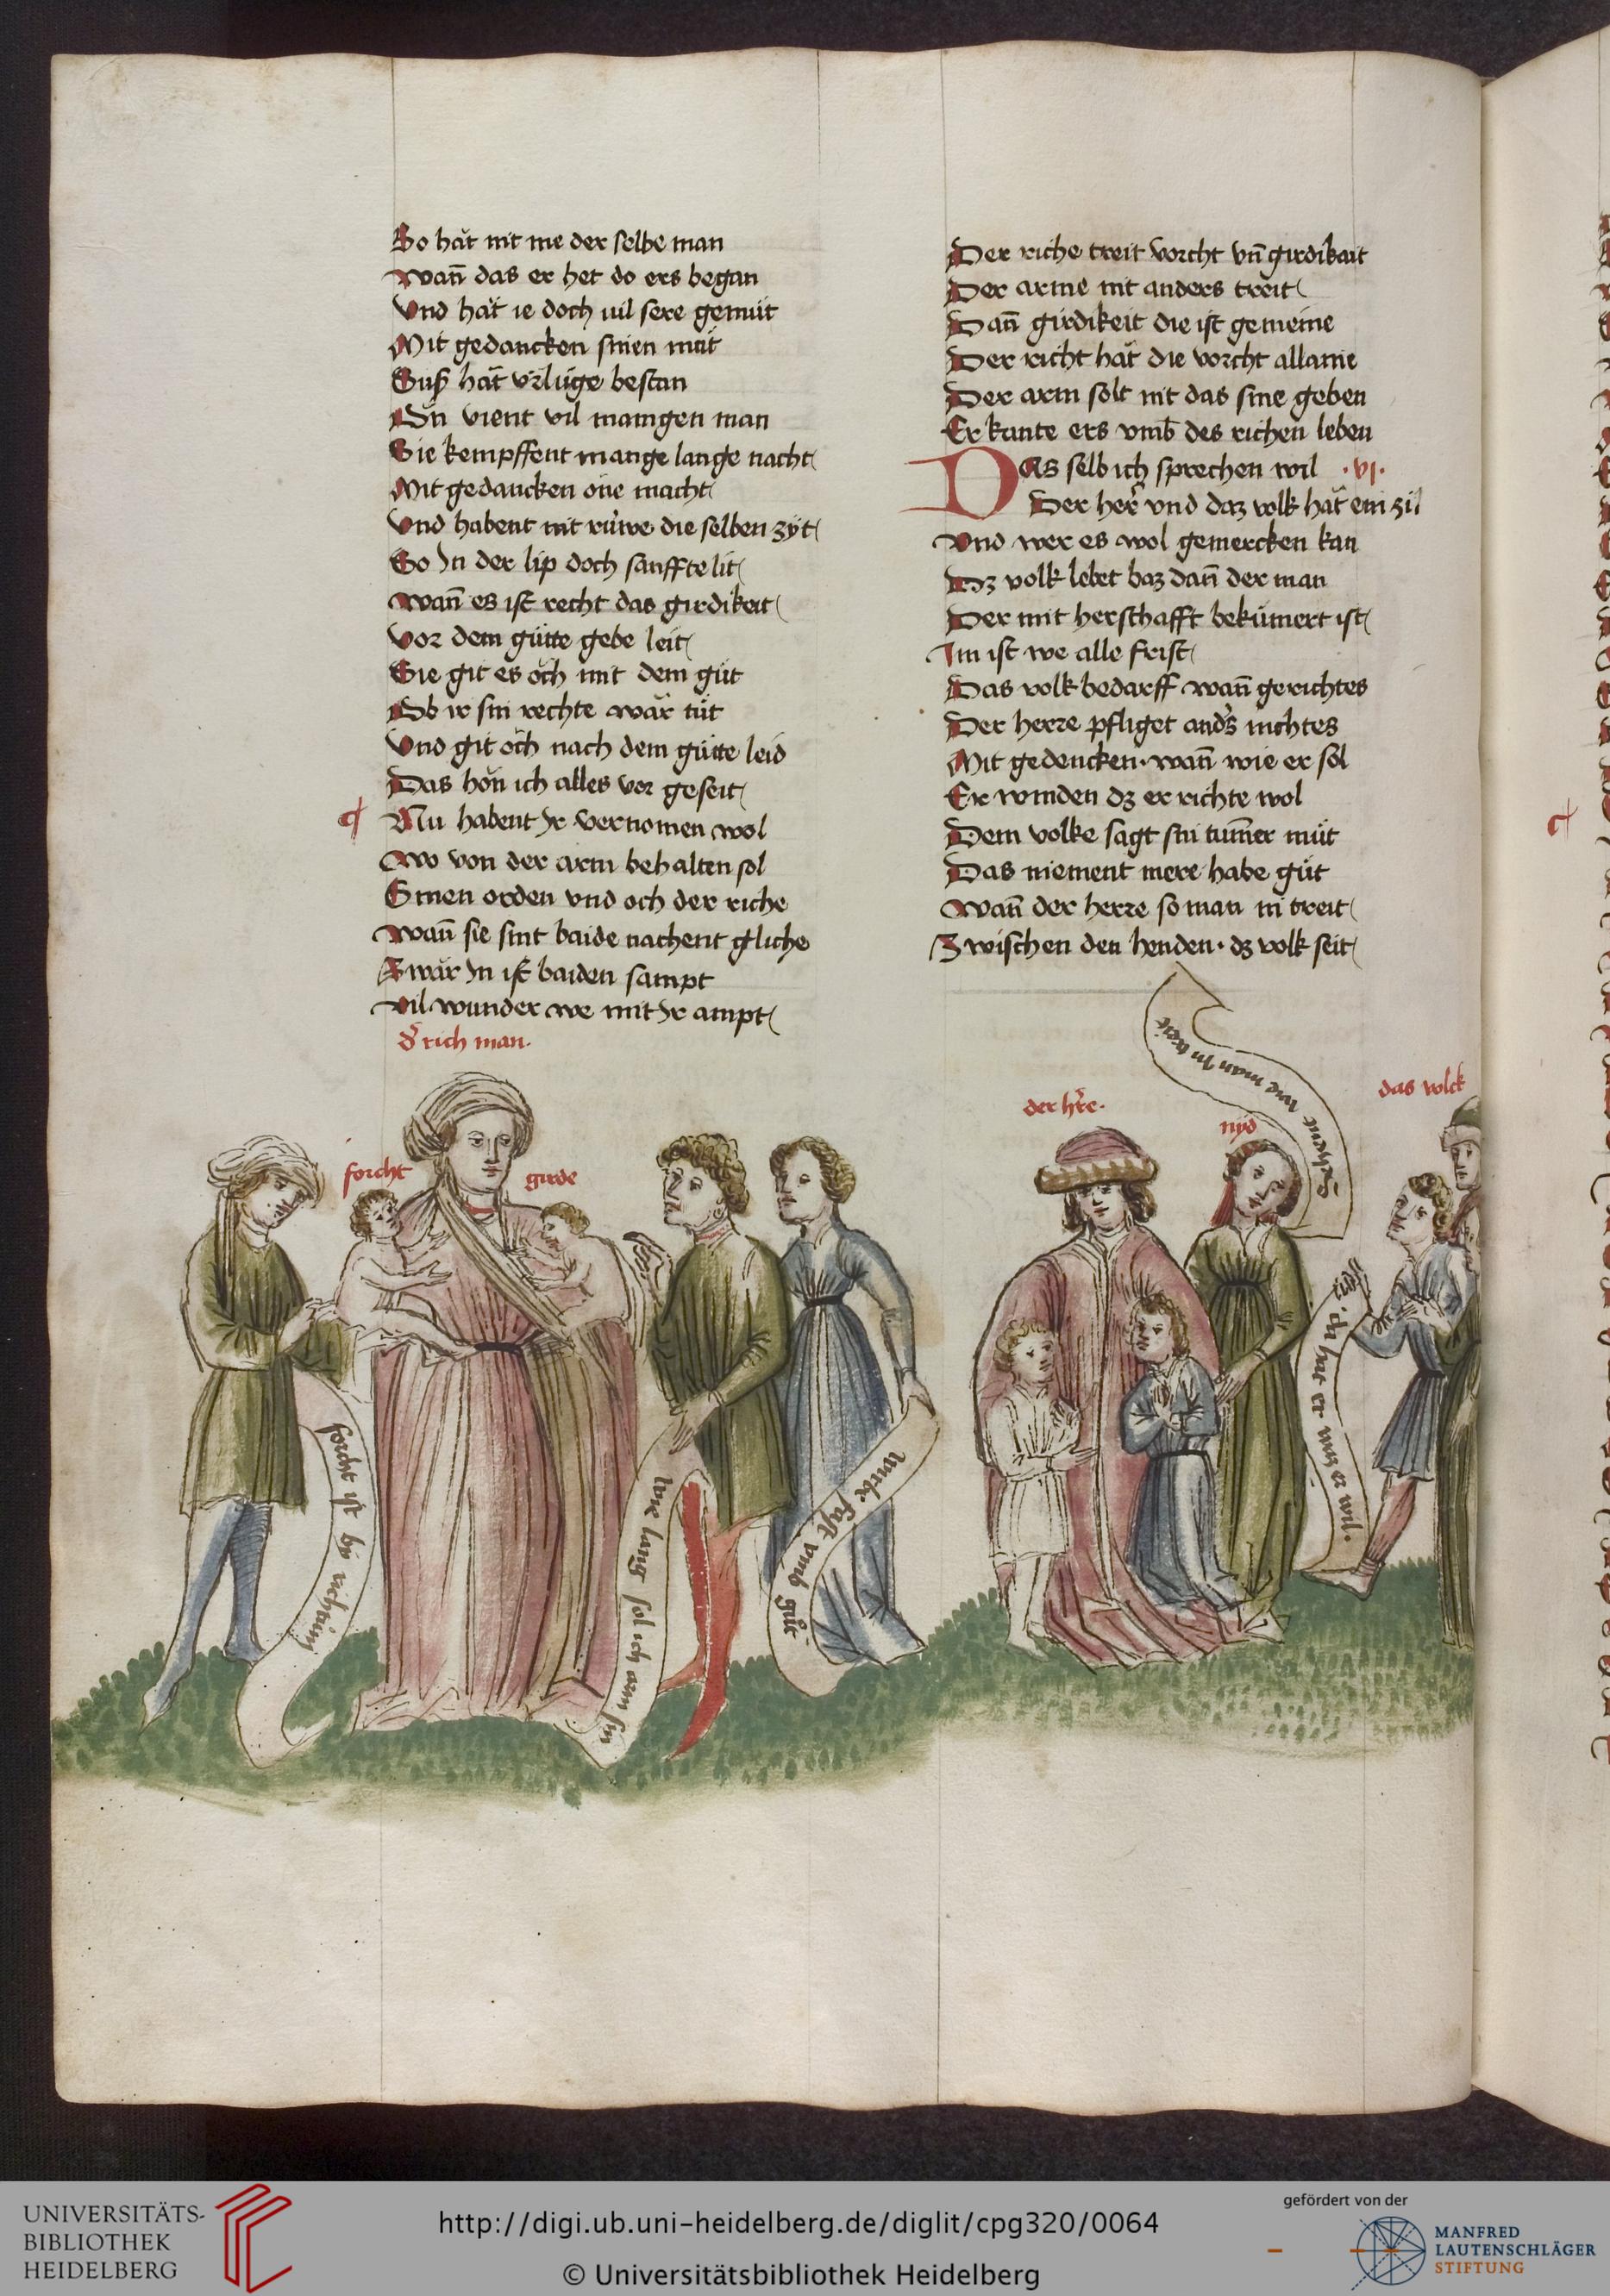 So hăt nit me der selbe man
Wann̄ das er het do ers began
Und hăt ie doch vil sere gemüt
Mit gedancken sinen müt
Suß hăt vrlüge bestan
Dn̄ vient vil maingen man
Sie kempffent mange lange nacht
Mit gedancken one macht
Und habent nit rüwe die selben zÿt
So In der lip doch sanffte lit
Wan̄ es ist recht das girdikeit
Vor dem gütte gebe leit
Sie git es öch mit dem güt
Ob ir sin rechte wăr tüt
Und git öch nach dem gütte leid
Das hŏn ich alles vor geseit
Nu habent Ir vernomen wol
Wo von der arm behalten sol
Sinen orden vnd och der riche
Wan̄ sie sint baide nachent gliche
Zwăr In ist baiden sampt
Vil wunder we mit Ir ampt
d' rich man.
Der riche treit vorcht vn̄ girdikait
Der arme nit anders treit
Dan̄ girdikeit die ist gemeine
Der richt hăt die vorcht allaine
Der arm solt nit das sine geben
Er kante ers vmb des richen leben
Das selb ich sprechen wil ·vj·
Der her' vnd daz volk hăt ein zil
Und wer es wol gemercken kan
Dz volk lebet baz dan̄ der man
Der mit herschafft bekümert ist
Im ist we alle frist
Das volk bedarff wan̄ gerichtes
Der herre pfliget and's nichtes
Mit gedencken· wan̄ wie er sol
Er winden dz er richte wol
Dem volke sagt sin tum̄er müt
Das niement mere habe güt
Wan̄ der herre so man in treit
Zwischen den henden· dz volk seit
forcht
girde
der h're·
nÿd
das volck
forcht ist bÿ richtum
wie lang sol ich arm sin
wirbe fast vmb güt
Sehent wie man In treit
ich hat er waz er wil·
UNIVERSITÄTS-
BIBLIOTHEK
HEIDELBERG
http://digi.ub.uni-heidelberg.de/diglit/cpg320/0064
© Universitätsbibliothek Heidelberg
gefördert von der
MANFRED
LAUTENSCHLÄGER
STIFTUNG